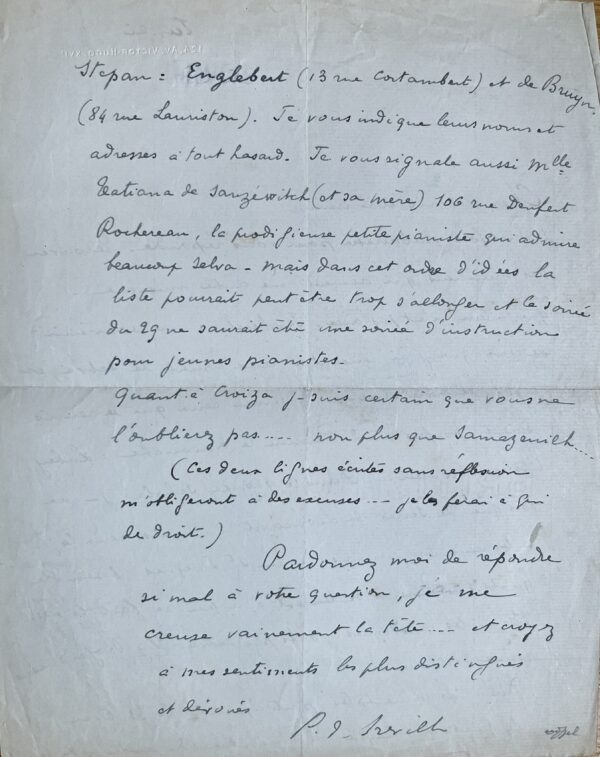 Stepan : Englebert (13 rue Cortambert) et de Bruyn.
(84 rue Lauriston). Je vous indique leurs noms et
adresses à tout hasard. Je vous signale aussi Mlle
Tatiana de Sanzéwitch (et sa mère) 106 rue Denfert
Rochereau, la prodigieuse petite pianiste qui admire
beaucoup Selva - mais dans cet ordre d'idées la
liste pourrait peut être trop s'allonger et la soirée
du 29 ne saurait être une soirée d'instruction
pour jeunes pianistes-
Quant à Croiza je suis certain que vous ne
l'oublierez pas.... non plus que Samazeuilh...
(Ces deux lignes écrites sans réflexion
m'obligeront à des excuses... je les ferai à qui
de droit.)
Pardonnez moi de répondre
si mal à votre question, je me
creuse vainement la tête.... et croyez
à mes sentiments les plus distingués
et dévoués
P. de Bréville